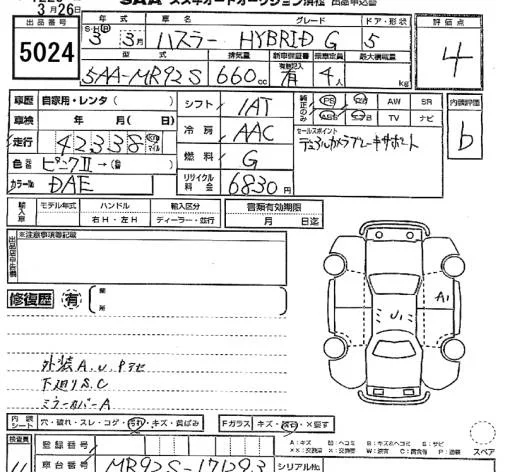 3月26日 SAA スズキオートオークション浜松 出品申込書
出品番号 年式 車名 グレード ドア・形状 評価点
5024 S・H・R 3年 3月 ハスラー HYBRID G 5 4
型式 排気量 新車保証書 乗車定員 最大積載量
5AA-MR92S 660cc 有 4人 kg
車歴 自家用・レンタ( ) シフト IAT 純正のみ PS PW AW SR 内装評価
車検 年 月( 日) 冷房 AAC TV ナビ b
走行 42338 セールスポイント
デュアルカメラブレーキサポート
色 ピンクII →( ) 燃料 G
カラーNo DAE リサイクル料金 6830円
輸入車 モデル年式 ハンドル 輸入区分 書類有効期限
右H・左H ディーラー・並行 月 日迄
※注意事項等記載
出品店申告欄
修復歴 有 箇所
A1
U1
外装A.U.Pキセ
下廻りS.C
ミラーカバーA
内装シート 穴・破れ・スレ・コゲ・汚れ・キズ・黄ばみ Fガラス キズ・ ・×要す スペア
検査員 登録番号 A:キズ U:ヘコミ B:キズ&ヘコミ S:サビ
××:交換済 ×:要交換 W:波有 C:腐食有 P:塗装
車台番号 MR92S-171293 シリアルNo.